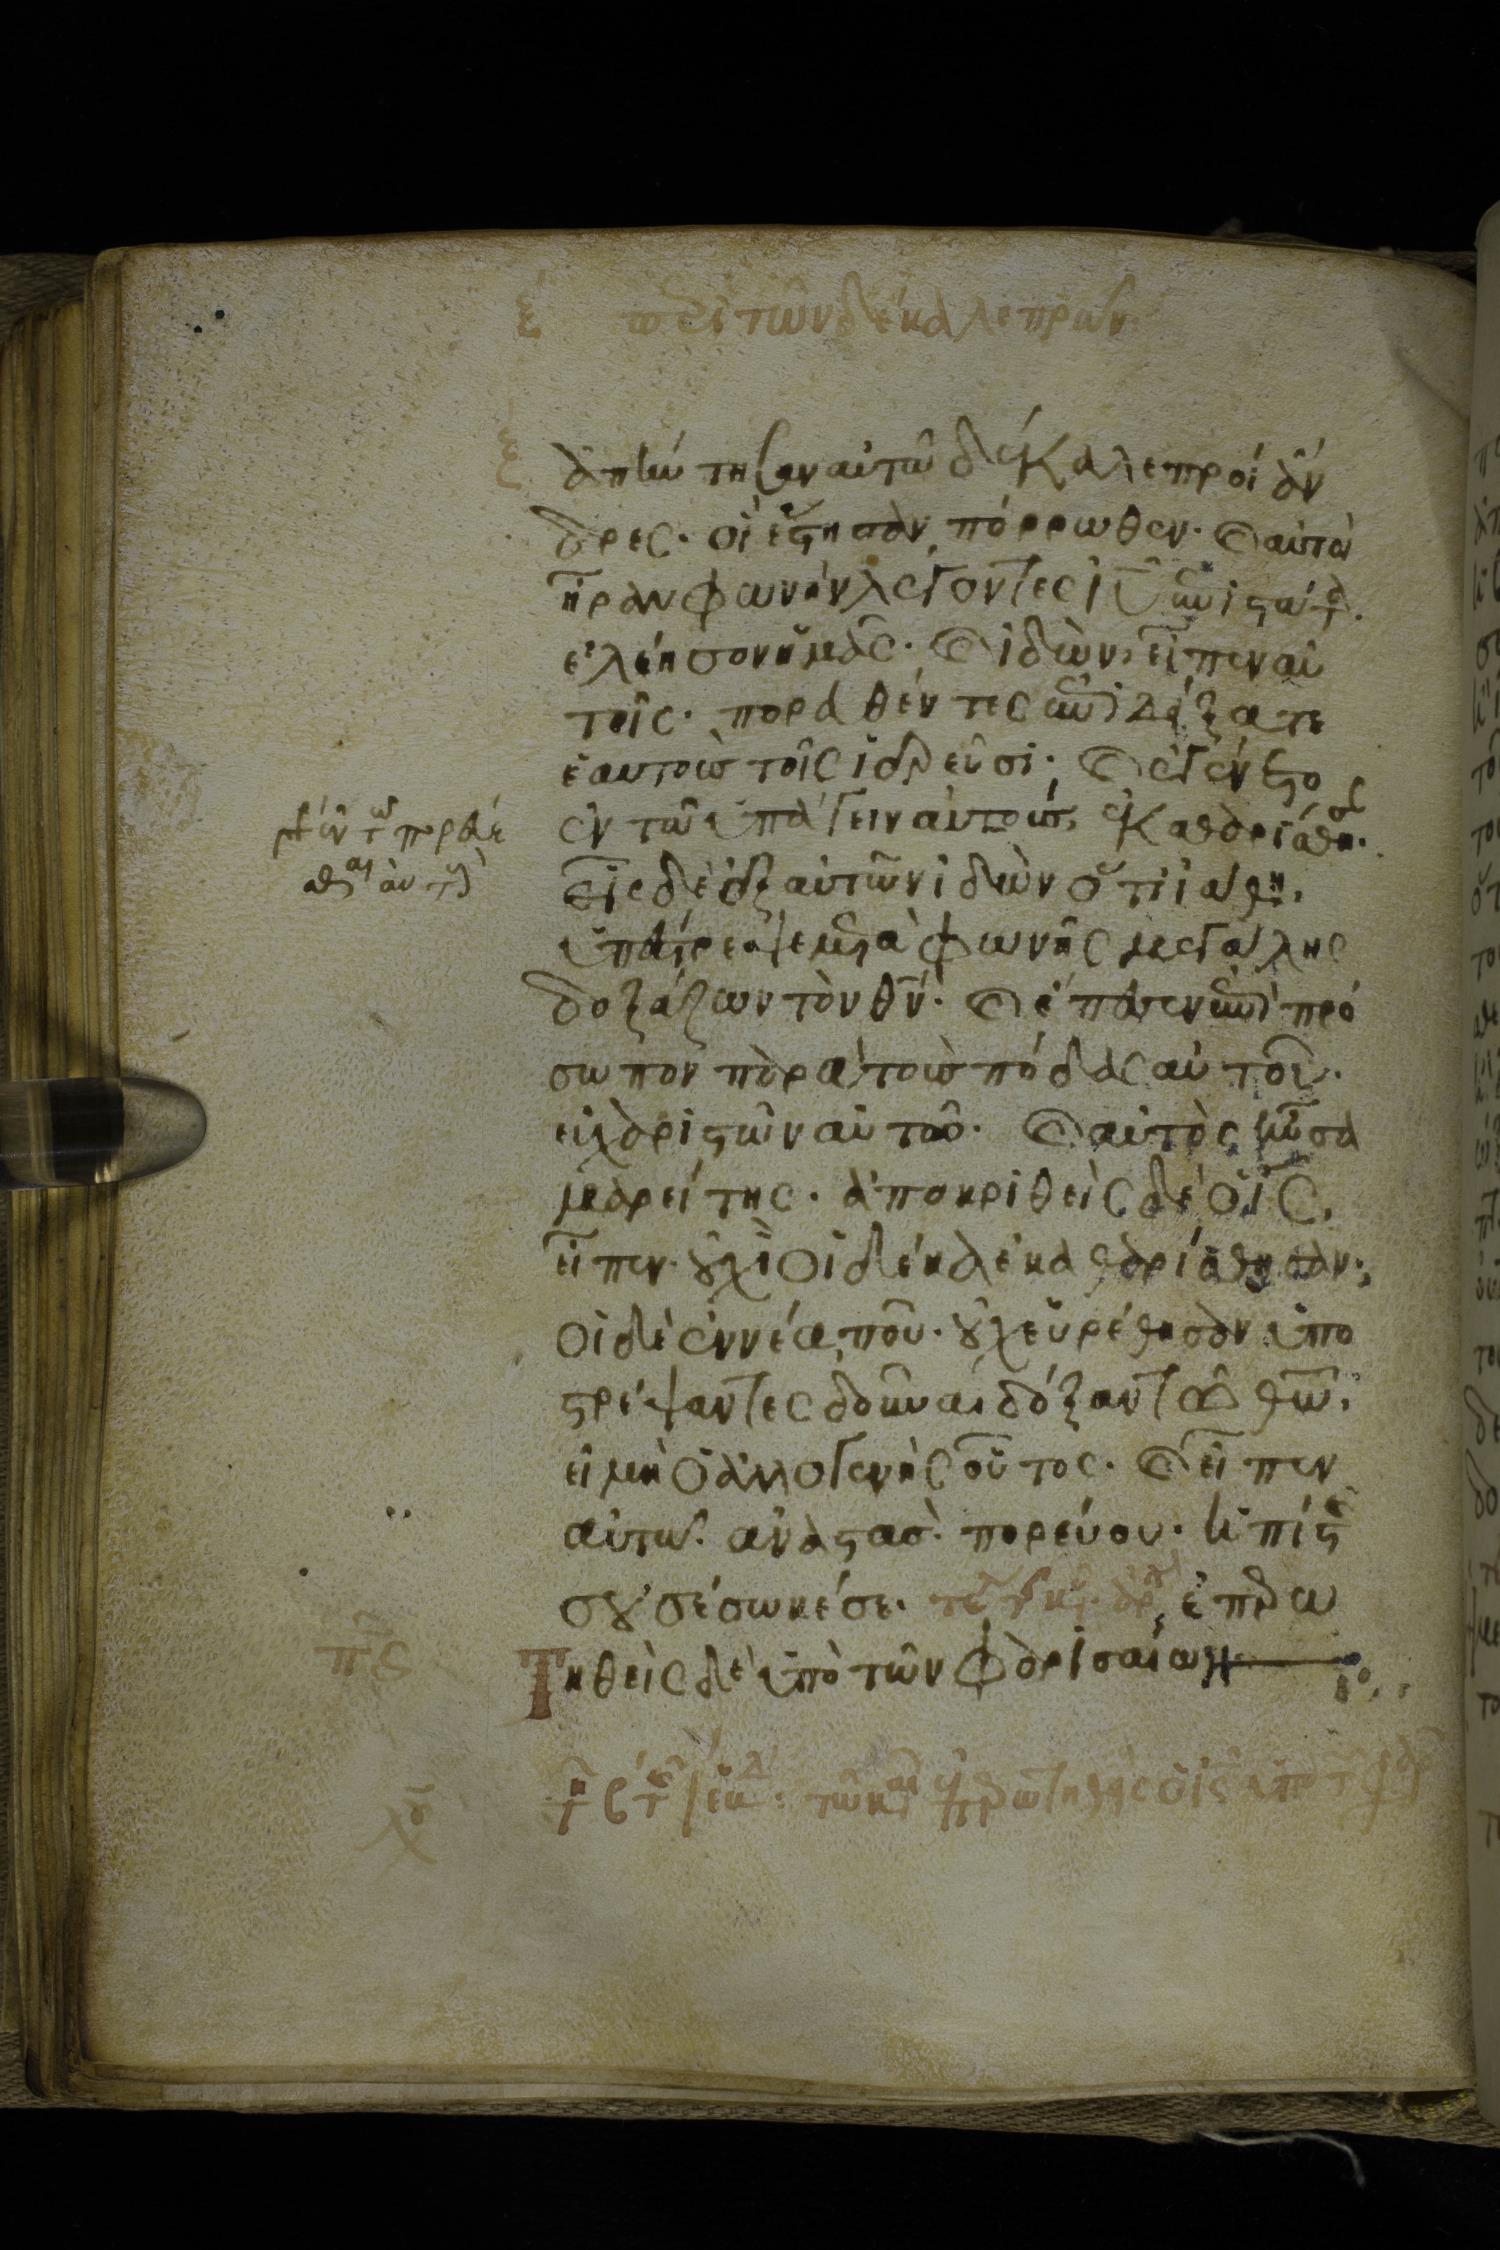 ξ περὶ τῶν δέκα λεπρῶν
ἀπήντησαν αὐτῶ δέκα λεπροὶ ἄν
δρες· οἳ ἔστησαν πόρρωθεν· καὶ αὐτοὶ
ἦραν φωνὴν λέγοντες ἰῦ ἐπιστάτα·
ἐλέησον ἡμᾶς· καὶ ἰδὼν, εἶπεν αὐ
τοῖς· πορευθέντες ἐπιδείξατε
ἑαυτοὺς τοῖς ἱερεῦσι· καὶ ἐγένετο
ἐν τῶ ὑπάγειν αὐτοὺς, ἐκαθαρίσθησαν·
εἷς δὲ ἐξ αὐτῶν ἰδὼν ὅτι ἰάθη,
ὑπέστρεψε μετὰ φωνῆς μεγάλης
δοξάζων τὸν θν· καὶ ἔπεσεν ἐπὶ πρό
σωπον παρὰ τοὺς πόδας αὐτοῦ·
εὐχαριστῶν αὐτῶ· καὶ αὐτὸς ἦν σα
μαρείτης· ἀποκριθεὶς δὲ ὁ ἰς,
εἶπεν· οὐχὶ οἱ δέκα ἐκαθαρίσθησαν;
οἱ δὲ ἐννέα ποῦ· οὐχ εὑρέθησαν ὑπο
στρέψαντες δοῦναι δόξαν τῶ θω,
εἰ μὴ ὁ ἀλλογενὴς οὗτος· καὶ εἶπεν
αὐτῶ· ἀναστὰς πορεύου· ἡ πίστις
σου σέσωκέ σε· τε ἐπερω
Τηθεὶς δὲ ὑπὸ τῶν φαρισαίων